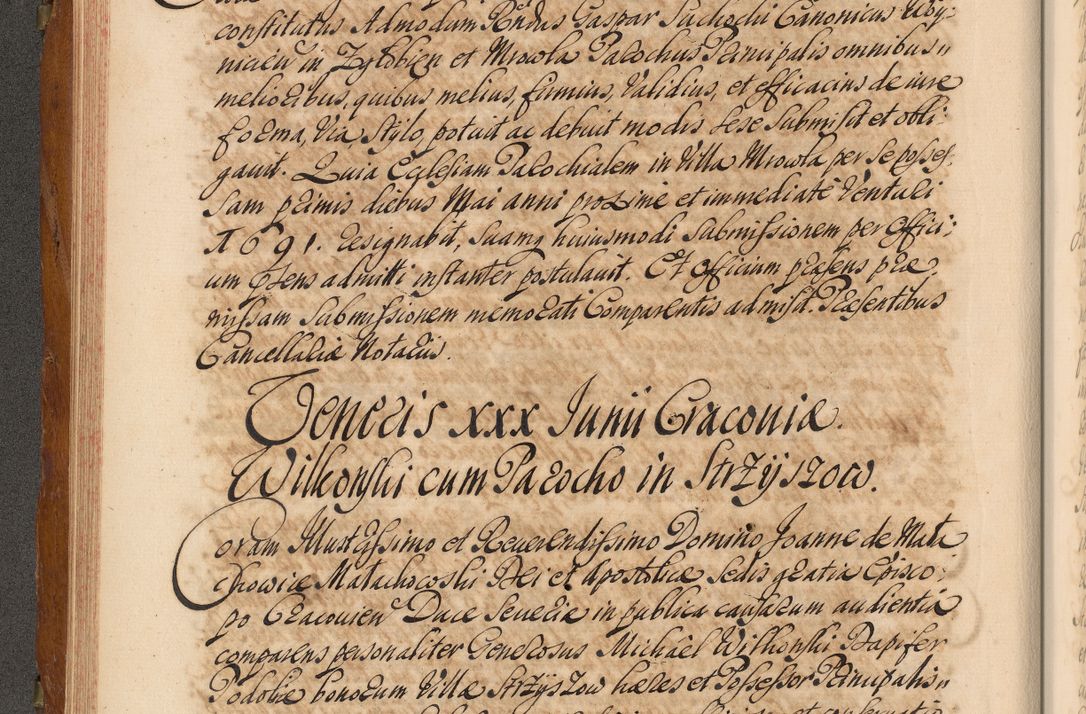 constitutus Admodum Rńdus Gaspar Suchocki Canonicus Uby:
nicień in Zyłobięn et Mrowla Parochus Principalis omnibus„
melioribus, quibus melius, firmius, validius, et efficacius de iure
forma, via stylo, potuit ac debuit modis sese submisit et obli:
gauit. Quia Ecclesiam Parochialem in Villa Mrowla per se posses:
sam primis diebus Maii anni proxime et immediatè Venturi
1691. resignabit, suamq huiusmodi submissionem per offici:
um pñens admitti instanter postulauit. Et officium præsens præ:
missam submissionem memorati Comparentis admisit. Præsentibus
Cancellariæ Notariis.
Veneris xxx Junii Cracouiæ.
Wilkonski cum Parocho in Strzyszow.
Coram Illustrissimo et Reuerendissimo Domino Joanne de Mała
chowice Małachowski Dei et Apostolicæ Sedis gratia Episco:
po Cracouień Duce Seueriæ in publica causarum audientia
comparens personaliter Generosus Michaël Wilkonski Dapifer
Podoliæ bonorum Villæ Strzyszow hæres et Possessor Principalis„